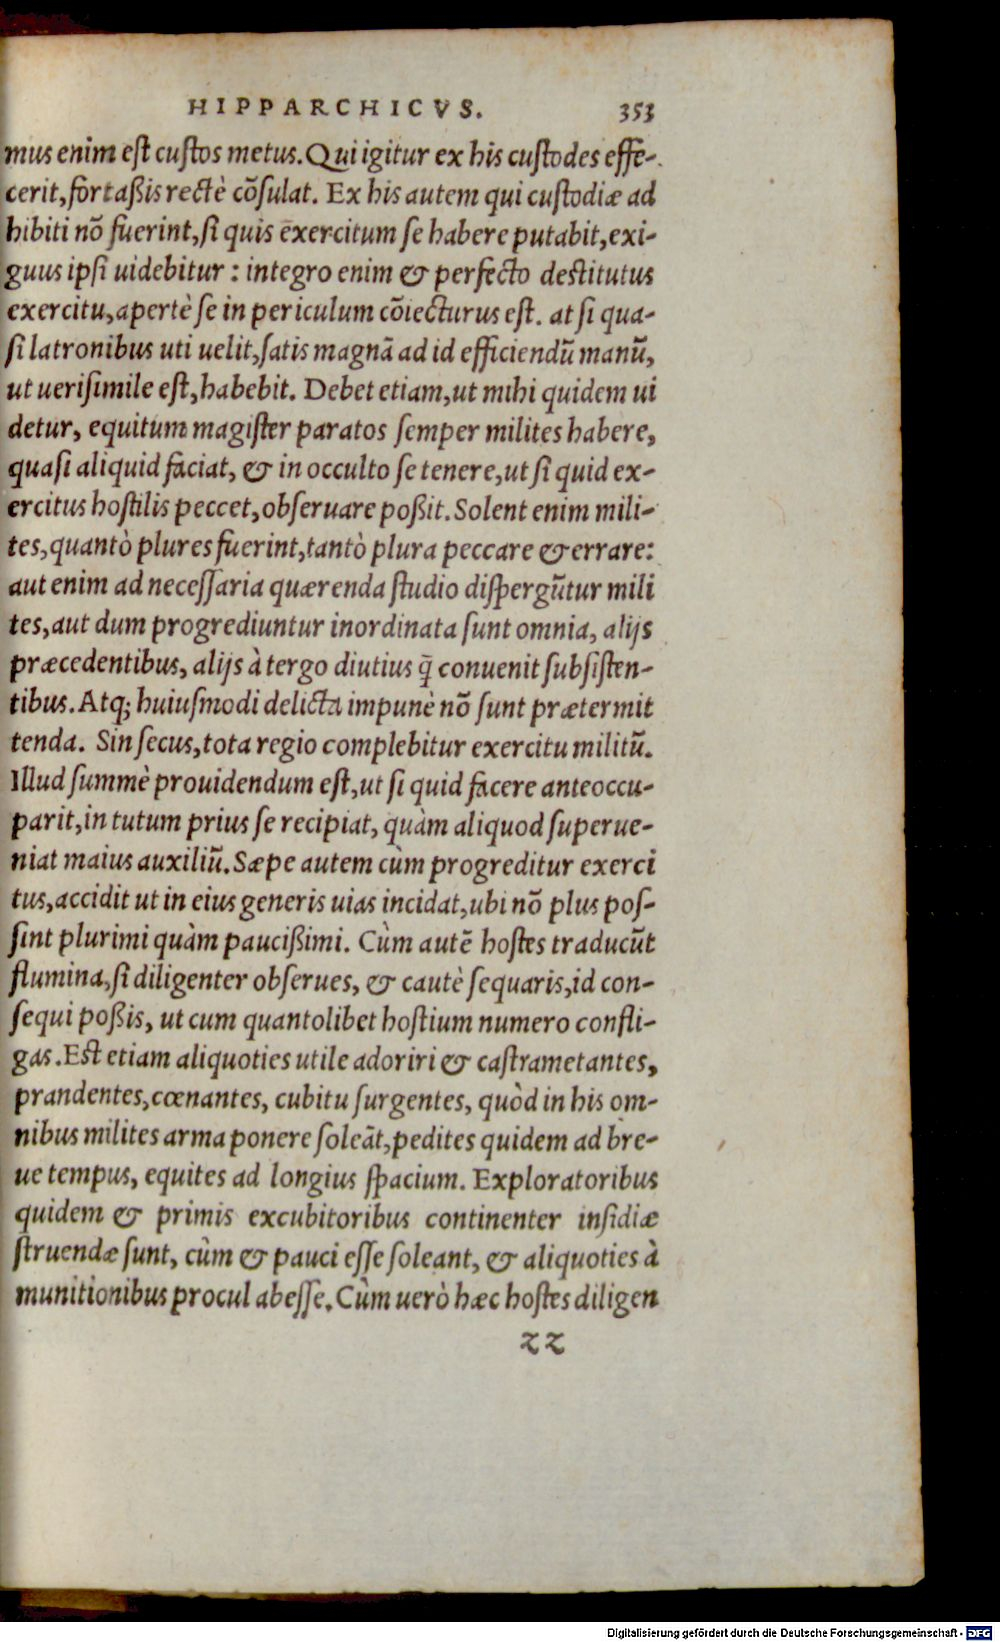 HIPPARCHICVS. 353
mus enim est custos metus. Qui igitur ex his custodes effe-
cerit, fortaßis rectè cõsulat. Ex his autem qui custodiæ ad
hibiti nõ fuerint, si quis exercitum se habere putabit, exi-
guus ipsi uidebitur : integro enim & perfecto destitutus
exercitu, apertè se in periculum cõiecturus est. at si qua-
si latronibus uti uelit, satis magnã ad id efficiendũ manũ,
ut uerisimile est, habebit. Debet etiam, ut mihi quidem ui
detur, equitum magister paratos semper milites habere,
quasi aliquid faciat, & in occulto se tenere, ut si quid ex-
ercitus hostilis peccet, obseruare poßit. Solent enim mili-
tes, quantò plures fuerint, tantò plura peccare & errare:
aut enim ad necessaria quærenda studio dispergũtur mili
tes, aut dum progrediuntur inordinata sunt omnia, alijs
præcedentibus, alijs à tergo diutius q̃ conuenit subsisten-
tibus. Atq; huiusmodi delicta impunè nõ sunt prætermit
tenda. Sin secus, tota regio complebitur exercitu militũ.
Illud summè prouidendum est, ut si quid facere anteoccu-
parit, in tutum prius se recipiat, quàm aliquod superue-
niat maius auxiliũ. Sæpe autem cùm progreditur exerci
tus, accidit ut in eius generis uias incidat, ubi nõ plus pos-
sint plurimi quàm paucißimi. Cùm autẽ hostes traducũt
flumina, si diligenter obserues, & cautè sequaris, id con-
sequi poßis, ut cum quantolibet hostium numero confli-
gas. Est etiam aliquoties utile adoriri & castrametantes,
prandentes, cœnantes, cubitu surgentes, quòd in his om-
nibus milites arma ponere soleãt, pedites quidem ad bre-
ue tempus, equites ad longius spacium. Exploratoribus
quidem & primis excubitoribus continenter insidiæ
struendæ sunt, cùm & pauci esse soleant, & aliquoties à
munitionibus procul abesse. Cùm uerò hæc hostes diligen
zz
Digitalisierung gefördert durch die Deutsche Forschungsgemeinschaft - DFG